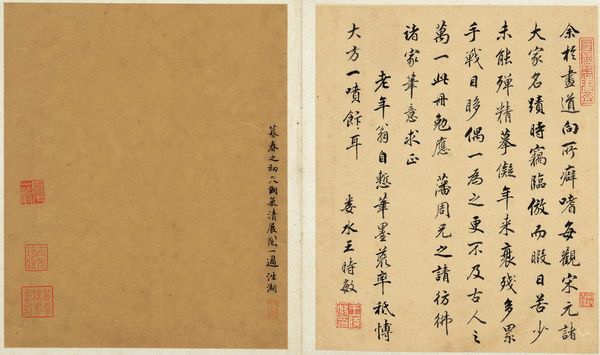 余於畫道向所癖嗜每觀宋元諸
大家名蹟時竊臨倣而暇日苦少
未能殫精摹儗年來衰殘多累
手戰目眵偶一為之更不及古人之
萬一此冊勉應 藩周兄之請彷彿
諸家筆意求正
老年翁自慙筆墨荒率祗博
大方一噴飰耳
婁水王時敏
暮春之初天朗氣清展玩一過